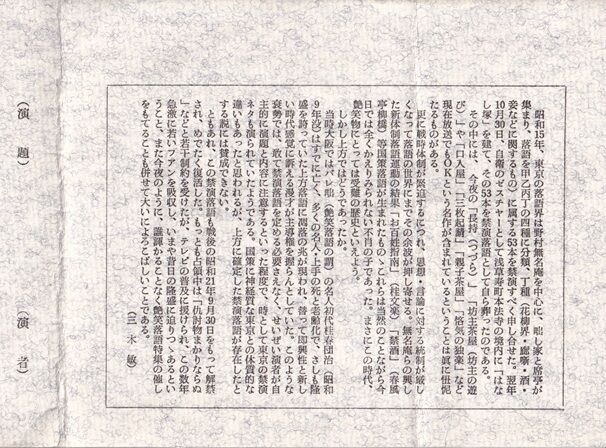 昭和15年、東京の落語界は野村無名庵を中心に、咄し家と席亭が
集まり、落語を甲乙丙丁の四種に分類、丁種（花柳界・廓噺・酒・
妾などに関するもの）に属する53本を禁演すべく申し合せた。翌年
10月30日、自粛のゼスチャーとして浅草寿町本法寺の境内に「はな
し塚」を建て、その53本を禁演落語として自ら葬ったのである。
その中には、今夜の「長持（つづら）」「坊主茶屋（坊主の遊
び）」や「口入屋」「三枚起請」「親子茶屋」「悋気の独楽」など
現在放送でもOKという名作が含まれているということは眞に忸怩
たるものがある。
更に戦時体制が緊迫するにつれ、思想・言論に対する統制が厳し
くなって落語の世界にまでその余波が押し寄せる。無名庵らの興し
た新体制落語運動の結果「お百姓指南」（桂文楽）「禁酒」（春風
亭柳橋）等国策落語が生まれたものゝ、これらは当然のことながら今
日では全くかえりみられない不肖の子であった。まさにこの時代、
艶笑物にとっては受難の歴史といえよう。
しかし上方ではどうであったか。
当時大阪ではバレ咄（艶笑落語の謂）の名人初代桂春団治（昭和
9年没）はすでに亡く、多くの名人・上手の死と老齢化で、さしも隆
盛を誇っていた上方落語に凋落の兆が現われ、替って即興性と新し
い時代感覚に訴える漫才が主導権を握らんとしていた。このような
衰勢では、敢て禁演落語を定める必要さえなく、せいぜい演者が自
主的に演題や内容に注意するといった程度で、時として東京の禁演
ネタも演られていたようである。国策に神経質な東京との体質的な
違いもあったと思われるが、上方に確定した禁演落語が存在したと
する説には賛成できない。
ともあれ、この禁演落語も戦後の昭和21年9月30日をもって解禁
され、めでたく復活した。もっとも占領中は「仇討物まかりならぬ
」などと若干制約を受けたが、テレビの普及に援けられ、この数年
急激に若いファンを吸収し、いまや昔日の隆盛に迫りつゝあるとい
うこと、また今夜のように、誰憚かることなく艶笑落語特集の催し
をもてることも併せて大いによろこばしいことである。
（三木敏）
（演題）
（演者）